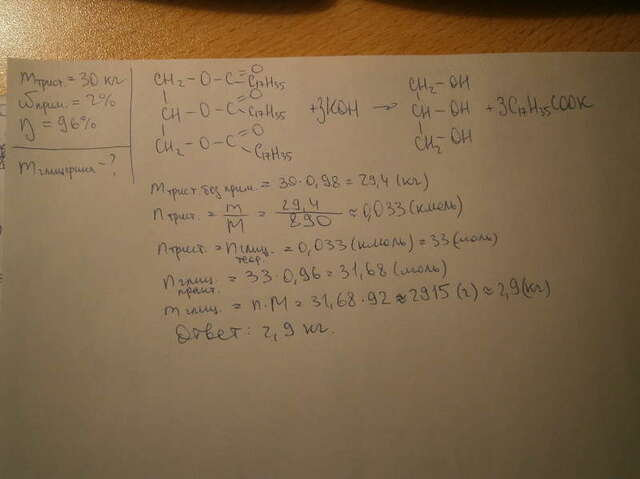 mтрист. = 30 кг
ωприм. = 2%
η = 96%
mглицерина - ?
CH₂ - O - C =O C₁₇H₃₅
CH - O - C =O C₁₇H₃₅ + 3KOH → CH₂ - OH CH - OH CH₂ - OH + 3C₁₇H₃₅COOK
CH₂ - O - C =O C₁₇H₃₅
mтрист без прим. = 30 · 0,98 = 29,4 (кг)
nтрист. = m/M = 29,4/890 ≈ 0,033 (кмоль)
nтрист. = nглиц. теор. = 0,033 (кмоль) = 33 (моль)
nглиц. практ. = 33 · 0,96 = 31,68 (моль)
mглиц. = n · M = 31,68 · 92 ≈ 2915 (г) ≈ 2,9 (кг)
Ответ: 2,9 кг.